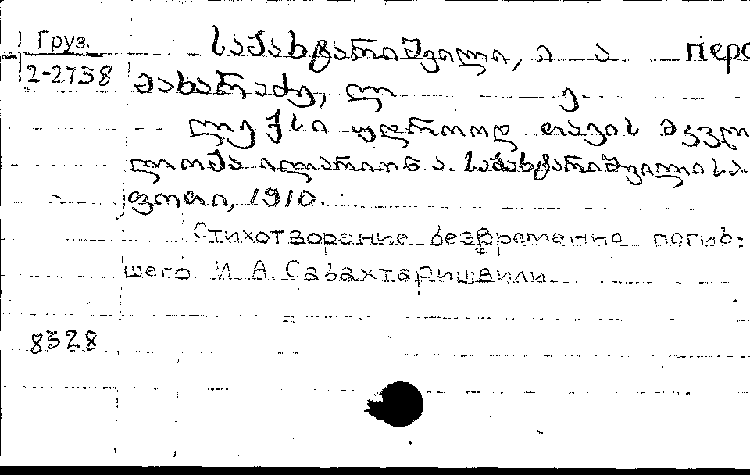 Груз.
2-2738
საბახტარიშვილი, ი. ა. перс
მახარაძე, ლ. ე.
ლექსი უდროოდ თავის მკვლ
ილარიონ ა. საბახტარიშვილისა.
ფოთი, 1910.
Стихотворение безвременно погиб-
шего И. А. Сабахтаришвили
8328